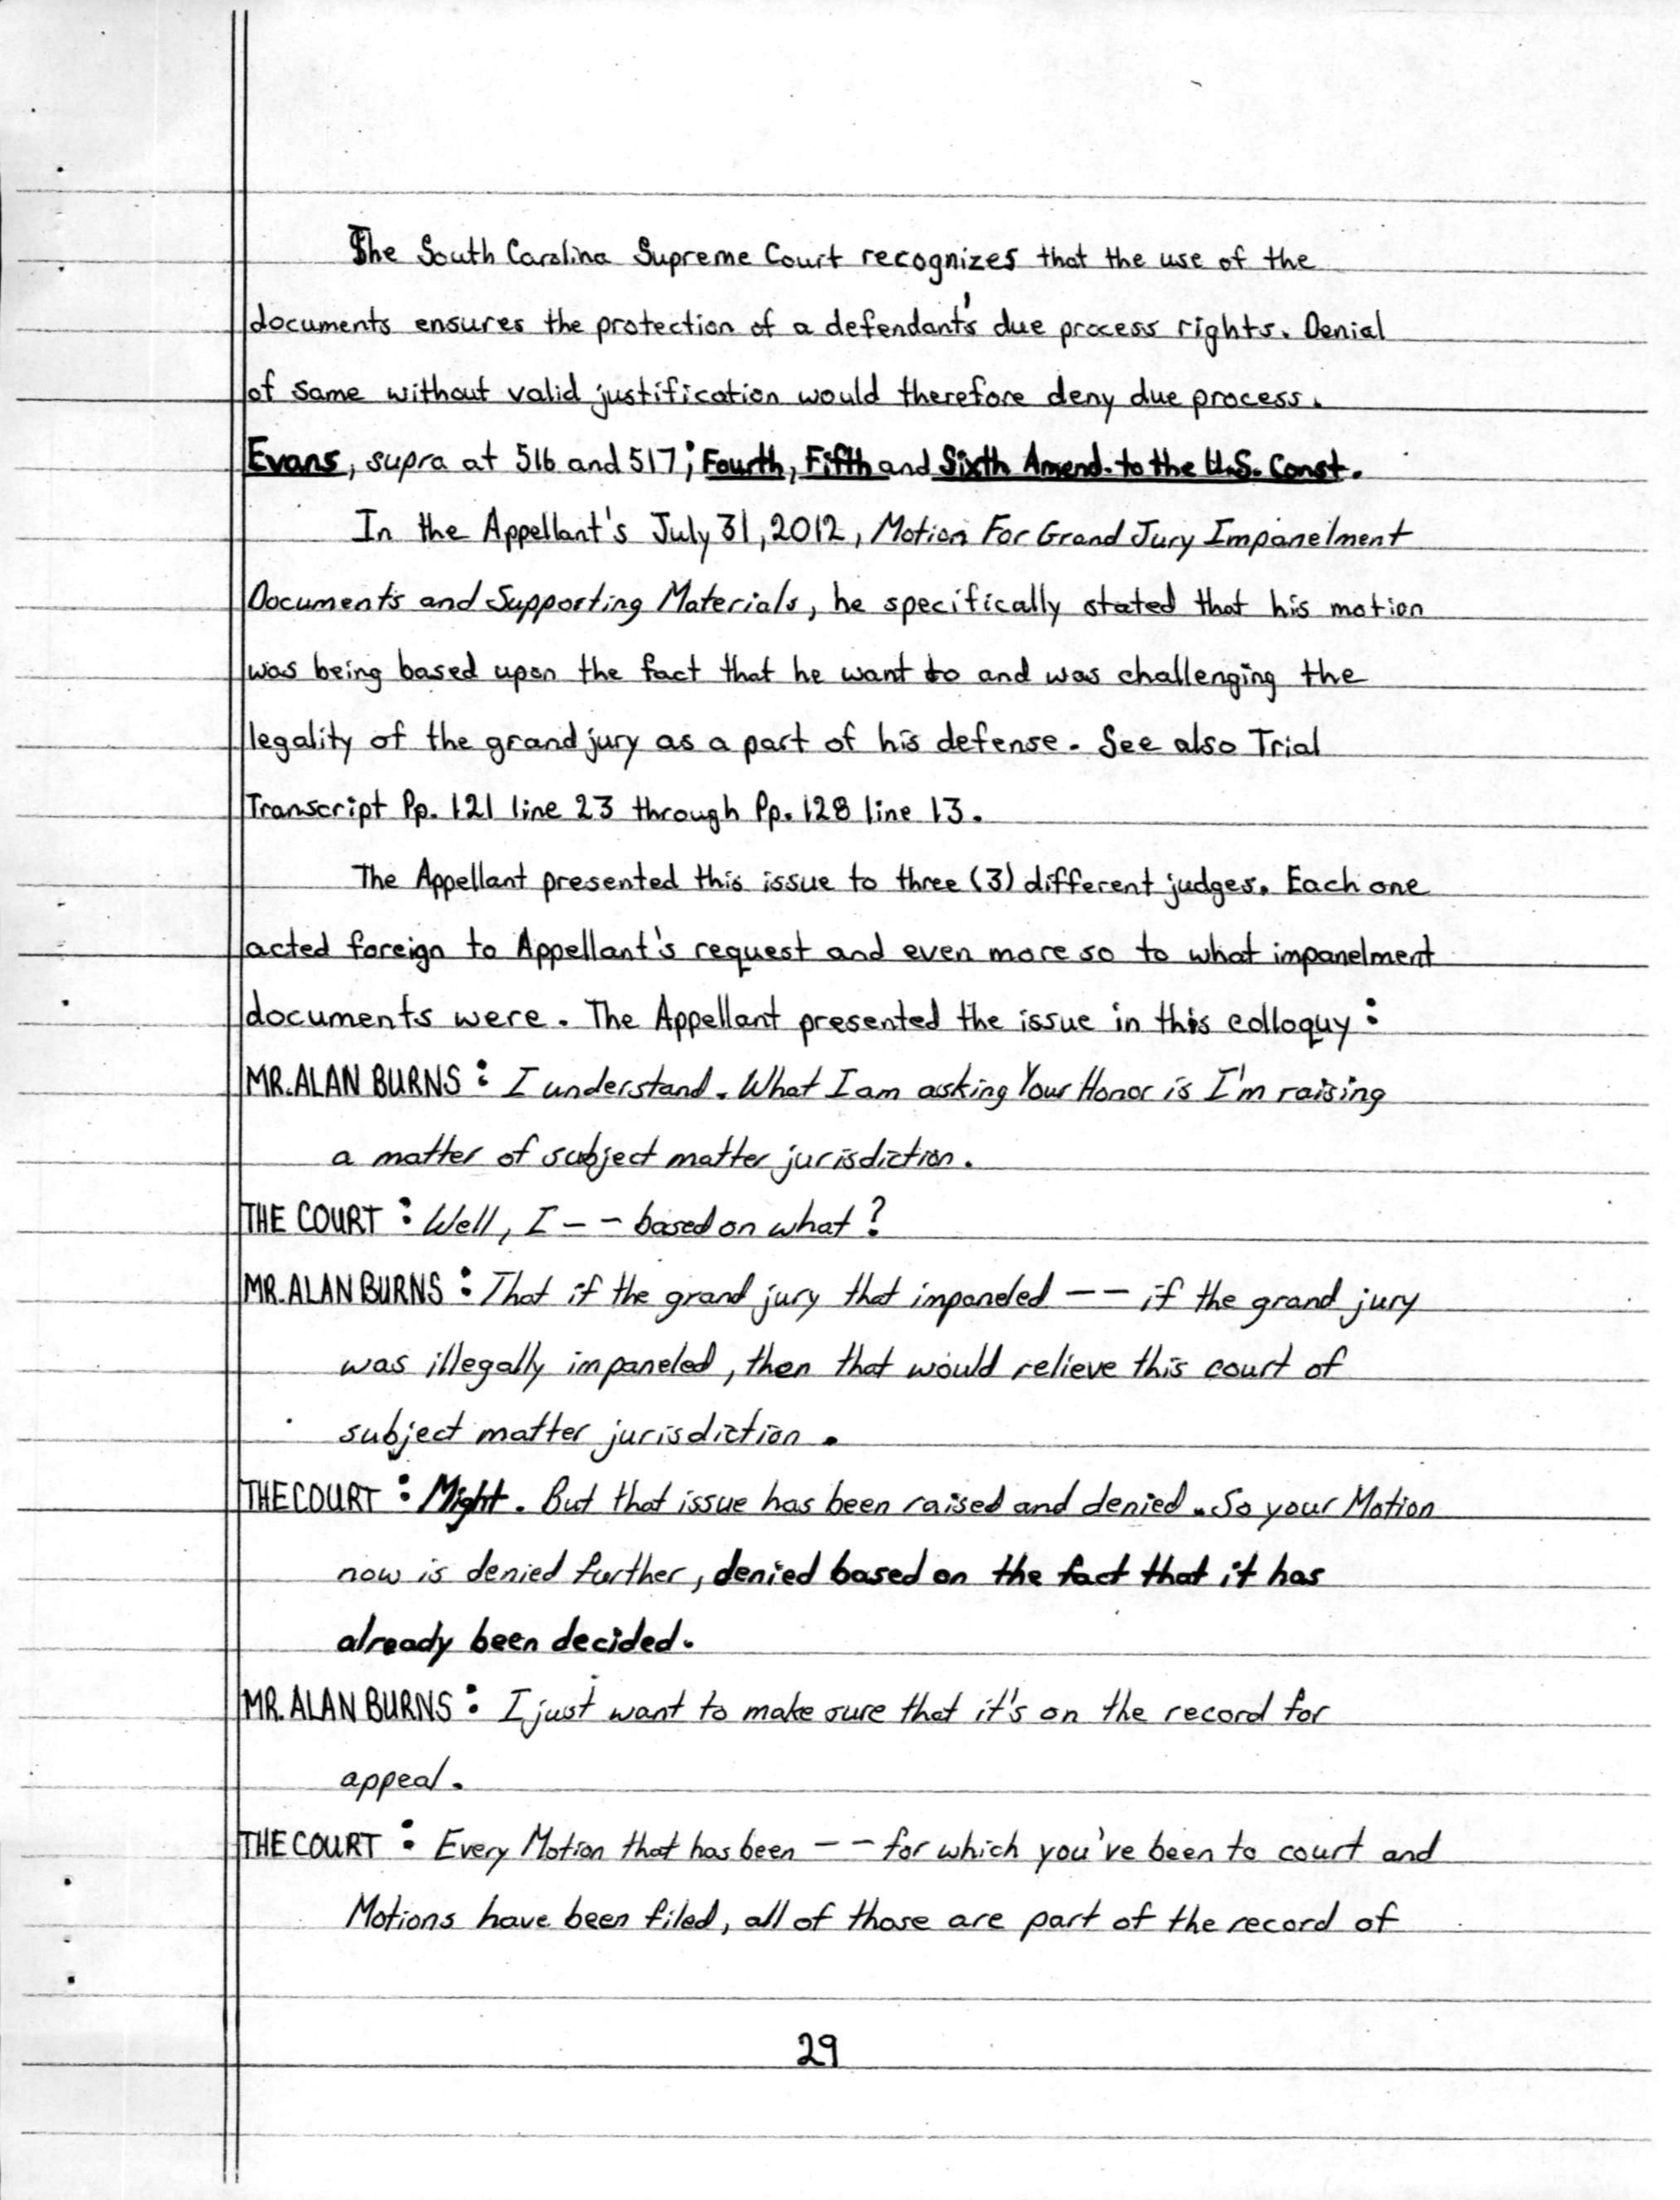 The South Carolina Supreme Court recognizes that the use of the
documents ensures the protection of a defendant's due process rights. Denial
of same without valid justification would therefore deny due process.
Evans, supra at 516 and 517; Fourth, Fifth and Sixth Amend. to the U.S. Const.
In the Appellant's July 31, 2012, Motion For Grand Jury Impanelment
Documents and Supporting Materials, he specifically stated that his motion
was being based upon the fact that he want to and was challenging the
legality of the grand jury as a part of his defense. See also Trial
Transcript Pp. 121 line 23 through Pp. 128 line 13.
The Appellant presented this issue to three (3) different judges. Each one
acted foreign to Appellant's request and even more so to what impanelment
documents were. The Appellant presented the issue in this colloquy:
MR. ALAN BURNS: I understand. What I am asking Your Honor is I'm raising
a matter of subject matter jurisdiction.
THE COURT: Well, I -- based on what?
MR. ALAN BURNS: That if the grand jury that impaneled -- if the grand jury
was illegally impaneled, then that would relieve this court of
subject matter jurisdiction.
THE COURT: Might. But that issue has been raised and denied. So your Motion
now is denied further, denied based on the fact that it has
already been decided.
MR. ALAN BURNS: I just want to make sure that it's on the record for
appeal.
THE COURT: Every Motion that has been -- for which you've been to court and
Motions have been filed, all of those are part of the record of
29